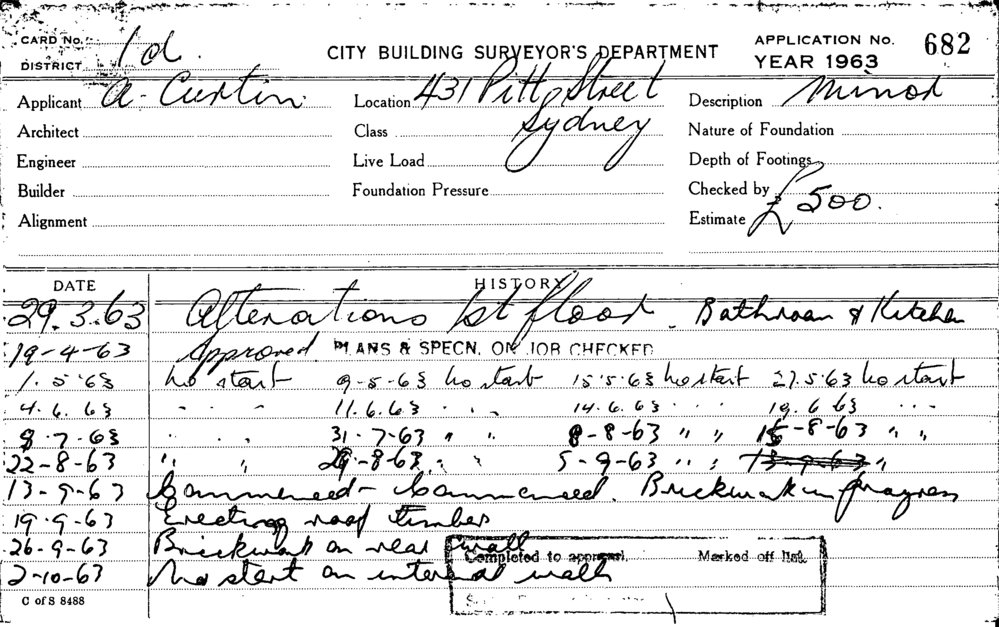 CARD No. 1d.
DISTRICT
CITY BUILDING SURVEYOR'S DEPARTMENT
APPLICATION No. 682
YEAR 1963
Applicant A. Curtin
Location 431 Pitt Street
Sydney
Description Minor
Architect
Class
Nature of Foundation
Engineer
Live Load
Depth of Footings
Builder
Foundation Pressure
Checked by
Alignment
Estimate £500.
DATE HISTORY
29.3.63 Alterations 1st floor. Bathroom & Kitchen
19-4-63 Approved PLANS & SPECN. ON JOB CHECKED
1.5.63 No start 9-5-63 No start 15.5.63 No start 27.5.63 No start
4.6.63 " " 11.6.63 " " 14.6.63 " " 19.6.63 " "
8.7.63 " " 31-7-63 " " 8-8-63 " " 15-8-63 " "
22-8-63 " " 29-8-63 " " 5-9-63 " " 13-9-63 "
13-9-63 Commenced - Commenced. Brickwork in progress
19.9-63 Erecting roof timber
26-9-63 Brickwork on rear wall
2-10-63 No start on internal walls
Completed to approval. Marked off list.
C of S 8488